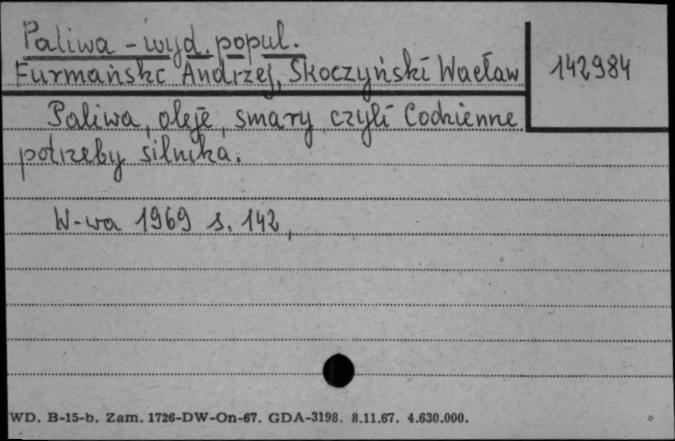 Paliwa - wyd. popul.
Furmański Andrzej, Skoczyński Wacław
142984
Paliwa, oleje, smary czyli Codzienne
potrzeby silnika.
W-wa 1969 s. 142,
WD. B-15-b. Zam. 1726-DW-On-67. GDA-3198. 8.11.67. 4.630.000.